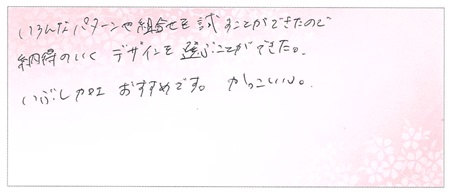 いろんなパターンや組合せを試すことができたので
納得のいく デザインを選ぶことができた。
いぶし加工 おすすめです。 かっこいい。